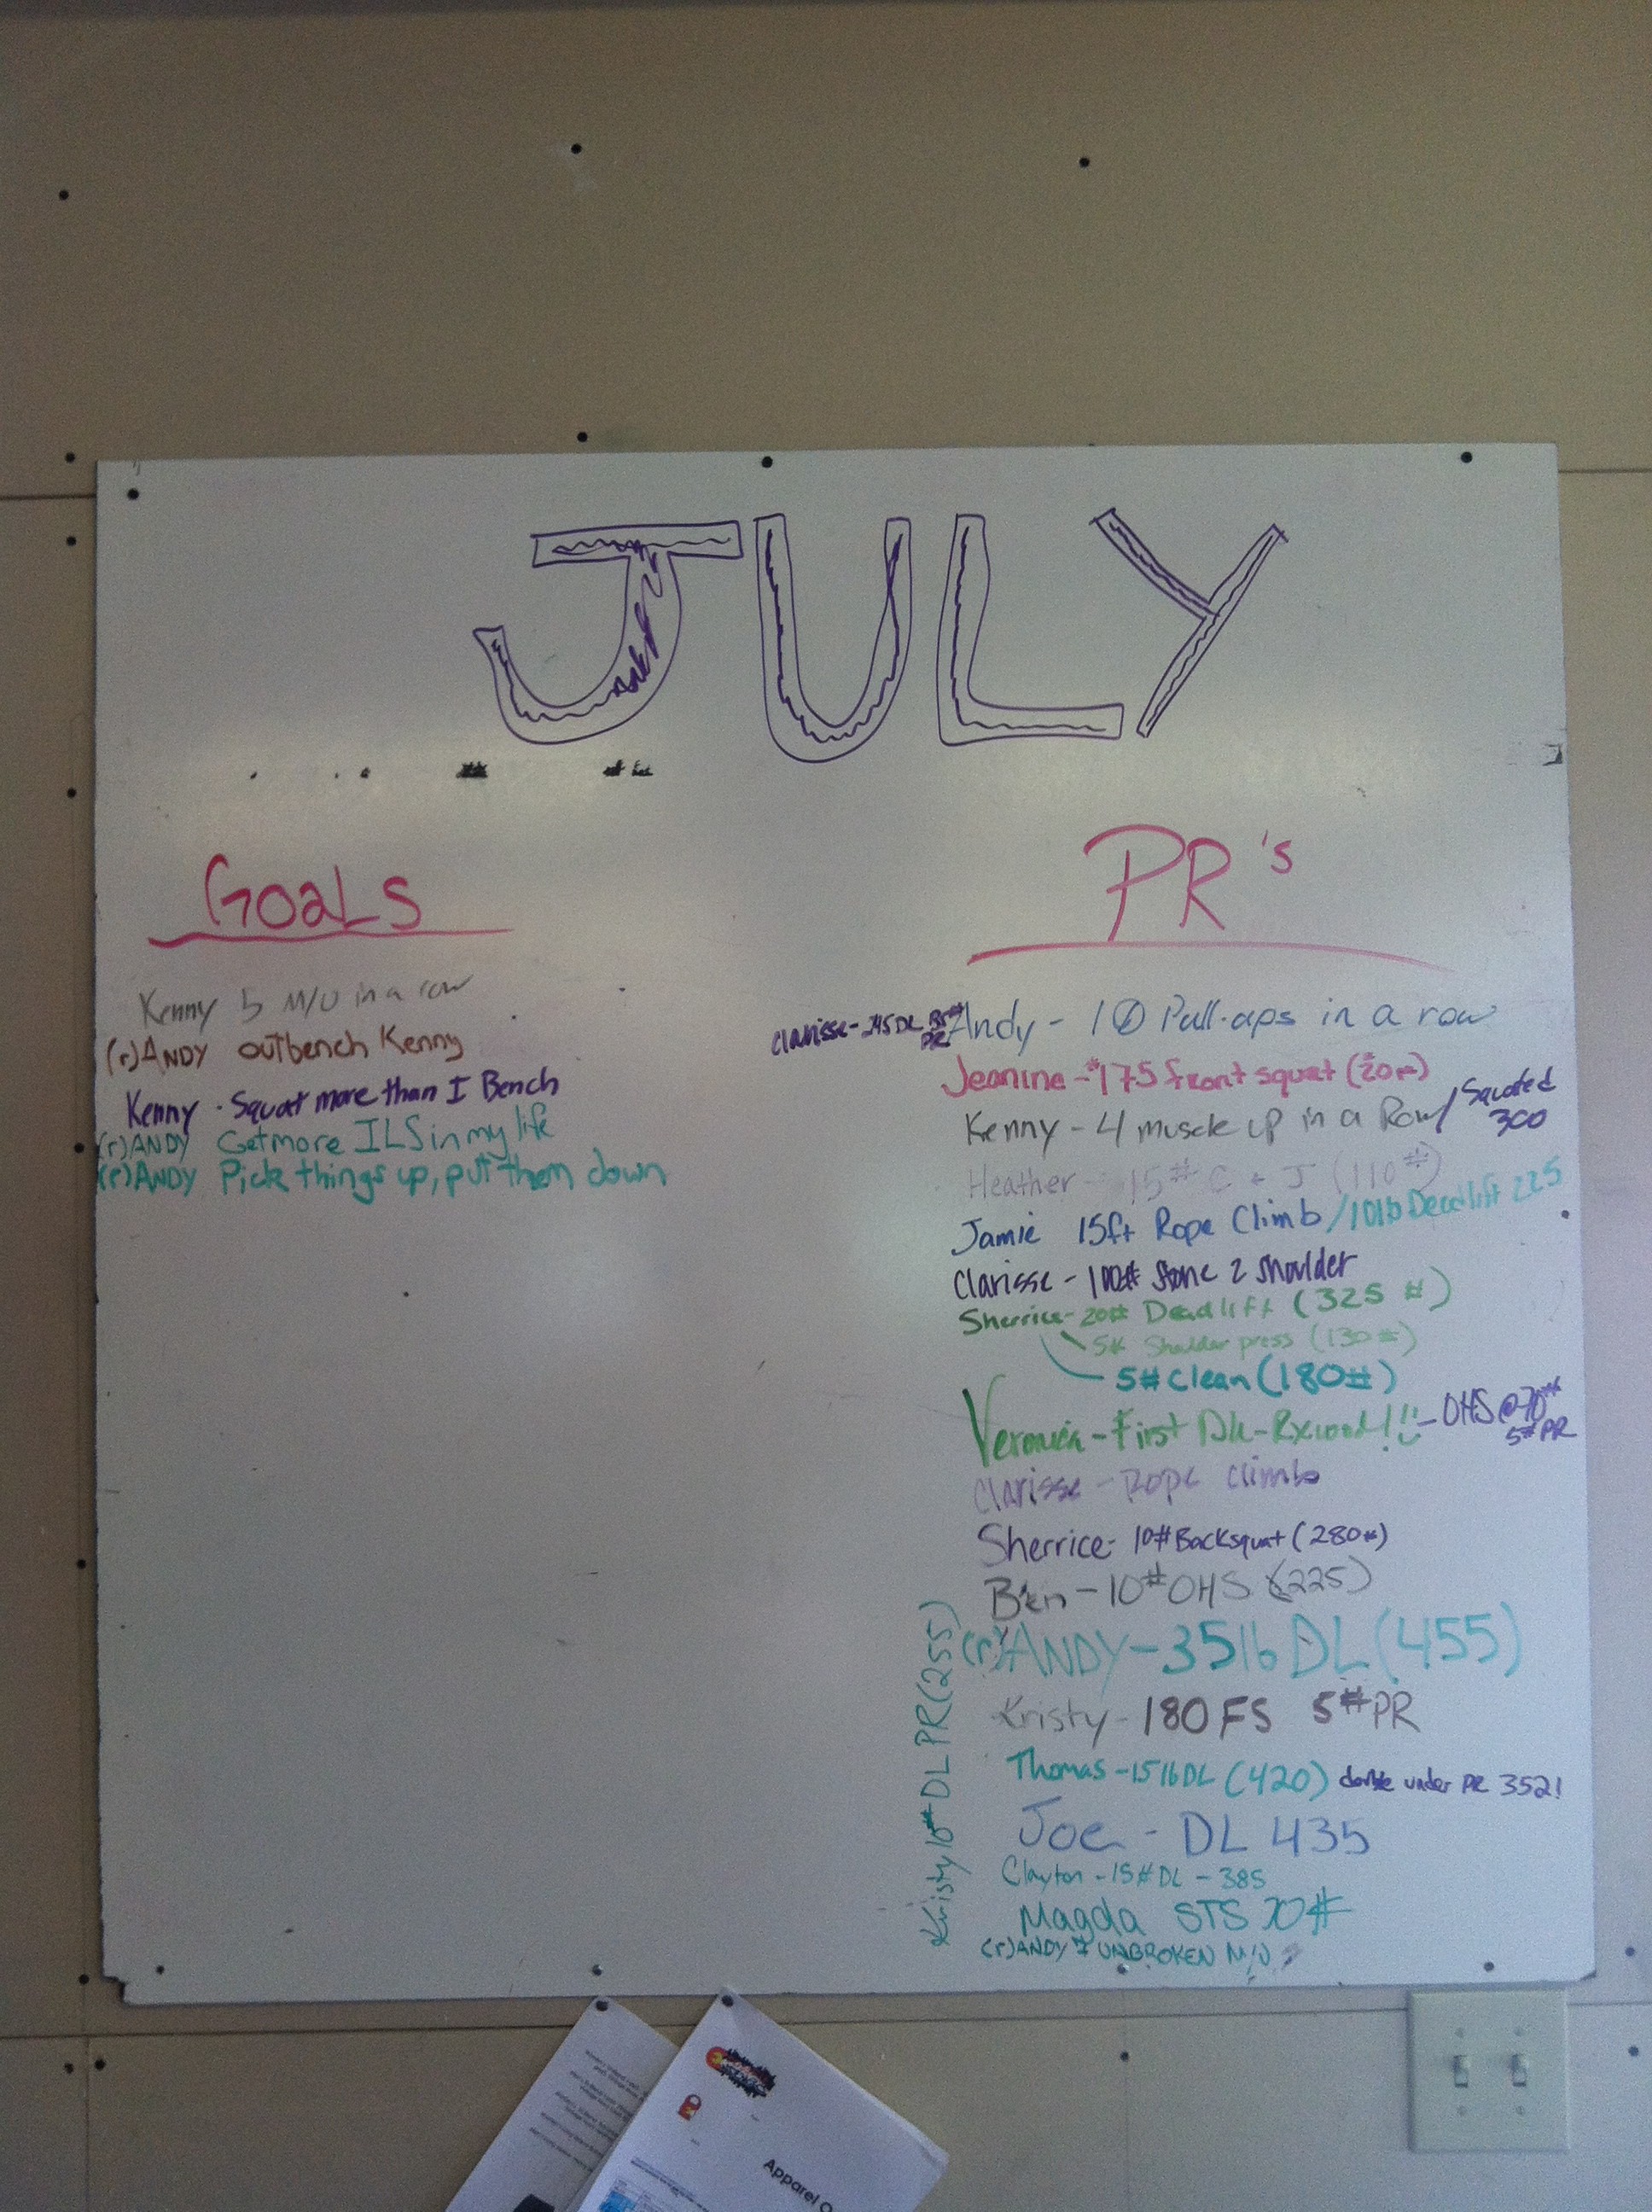 JULY
GOALS
Kenny 5 M/U in a row
(r)ANDY outbench Kenny
Kenny - Squat more than I Bench
(r)ANDY Get more ILS in my life
(r)ANDY Pick things up, put them down
PR's
Clarisse - 245 DL PR
Andy - 10 Pull-ups in a row
Jeanine - #175 front squat
Kenny - 4 muscle up in a Row / Squated 300
Heather - 15# C + J (110#)
Jamie 15ft Rope Climb / 10lb Deadlift 225
Clarisse - 100# Stone 2 Shoulder
Sherrice - 20# Deadlift (325 #)
5# Shoulder press (130#)
5# Clean (180#)
Veronica - First DU - Rx wod!!! - OHS @ 70# 5# PR
Clarisse - Rope Climb
Sherrice - 10# Backsquat (280#)
Ben - 10# OHS (225)
(r)ANDY - 35lb DL (455)
Kristy - 180 FS 5# PR
Thomas - 15lb DL (420) double under PR 352!
Joe - DL 435
Clayton - 15# DL - 385
Magda STS 70#
(r)ANDY 7 UNBROKEN M/U
Kristy 10# DL PR (255)
Apparel O